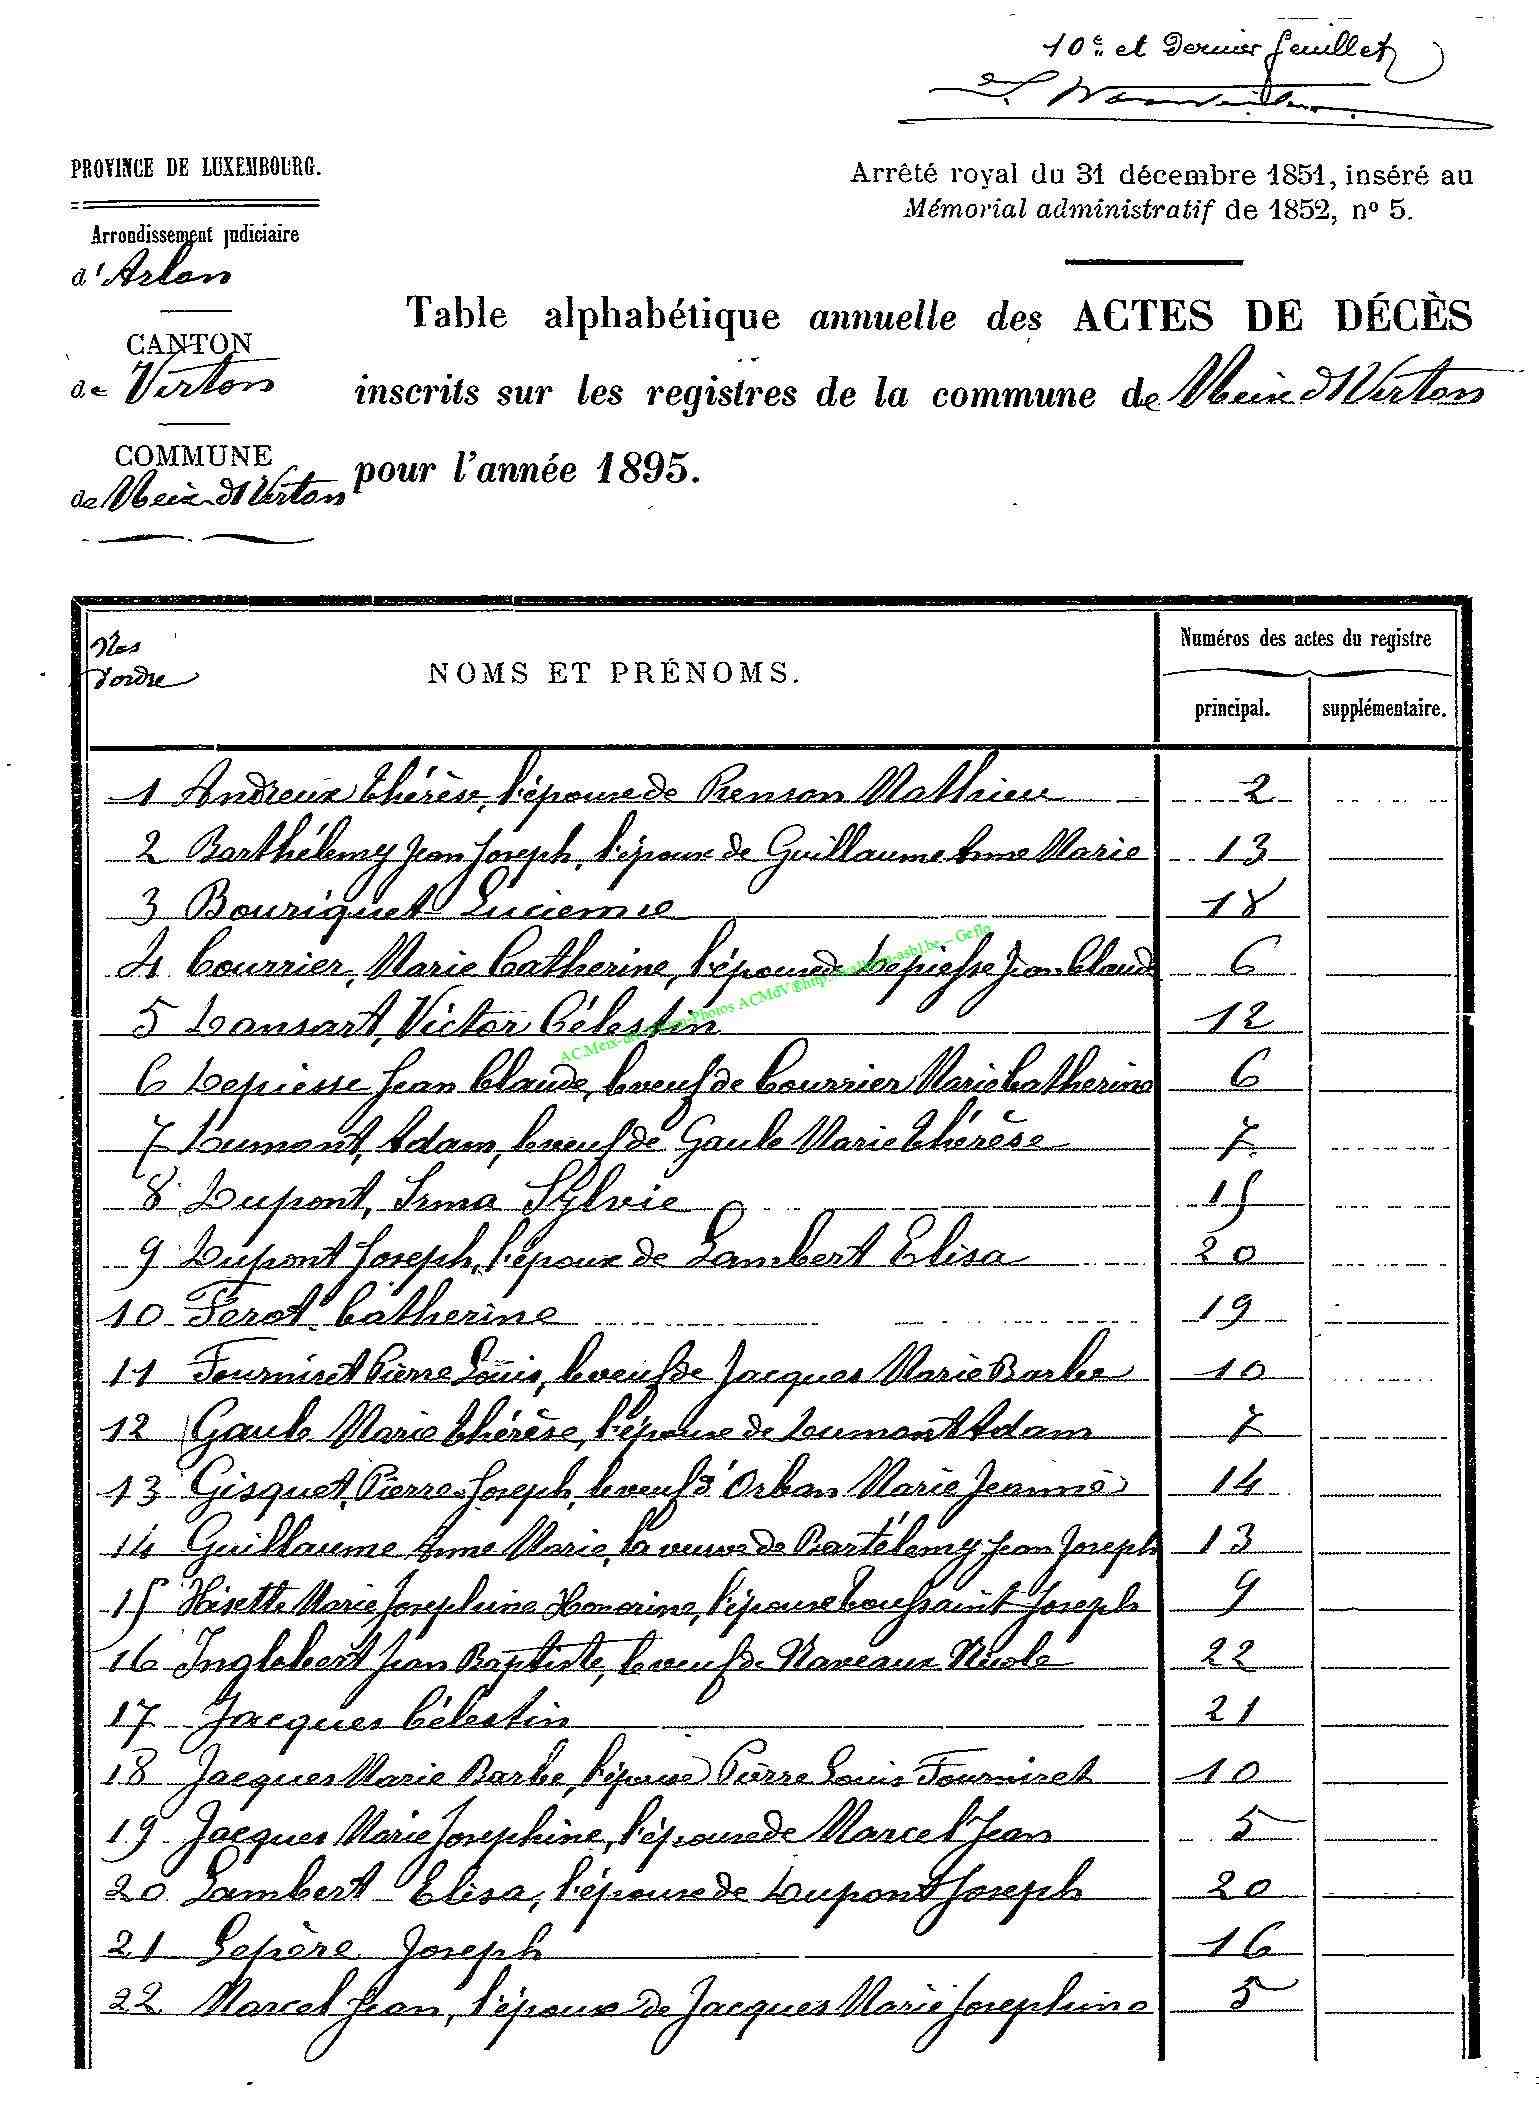 10e et Dernier feuillet
PROVINCE DE LUXEMBOURG.
Arrêté royal du 31 décembre 1851, inséré au
Mémorial administratif de 1852, no 5.
Arrondissement judiciaire
d'Arlon
Table alphabétique annuelle des ACTES DE DÉCÈS
CANTON
de Virton
inscrits sur les registres de la commune de Meix dt Virton
COMMUNE
de Meix dt Virton
pour l'année 1895.
Nos d'ordre
NOMS ET PRÉNOMS.
Numéros des actes du registre
principal. supplémentaire.
1 Andreux Thérèse, l'épouse de Renson Mathieu 2
2 Barthélemy Jean Joseph, l'époux de Guillaume Anne Marie 13
3 Bouriquet Lucienne 18
4 Courrier, Marie Catherine, l'épouse de Depiesse Jean Claude 6
5 Dansart, Victor Célestin 12
6 Depiesse Jean Claude, le veuf de Courrier Marie Catherine 6
7 Dumont, Adam, le veuf de Gaule Marie Thérèse 7
8 Dupont, Irma Sylvie 15
9 Dupont Joseph, l'époux de Lambert Elisa 20
10 Ferot Catherine 19
11 Fourniret Pierre Louis, le veuf de Jacques Marie Barbe 10
12 Gaule Marie Thérèse, l'épouse de Dumont Adam 7
13 Gisquet, Pierre Joseph, le veuf d'Orban Marie Jeanne 14
14 Guillaume Anne Marie, la veuve de Bartélemy Jean Joseph 13
15 Hisette Marie Josephine Honorine, l'épouse Toussaint Joseph 9
16 Inglebert Jean Baptiste, le veuf de Naveaux Nicole 22
17 Jacques Célestin 21
18 Jacques Marie Barbe, l'épouse Pierre Louis Fourniret 10
19 Jacques Marie Josephine, l'épouse de Marcel Jean 5
20 Lambert Elisa, l'épouse de Dupont Joseph 20
21 Lepère Joseph 16
22 Marcel Jean, l'époux de Jacques Marie Josephine 5